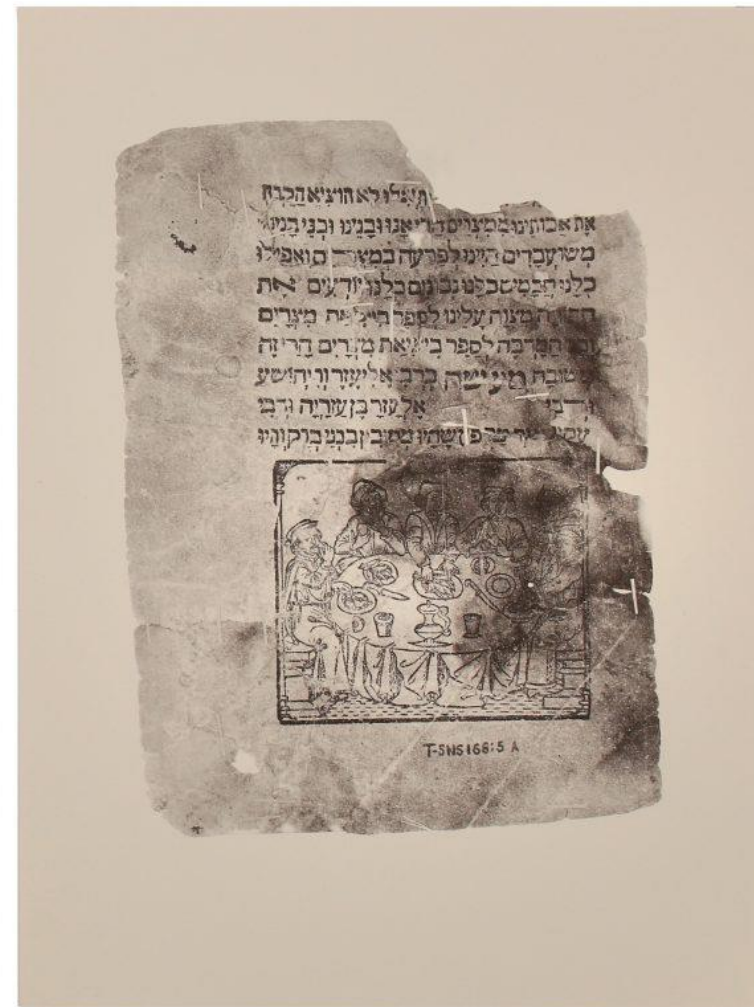 ואלו לא הוציא הקבה
את אבותינו ממצרים הרי אנו ובנינו ובני בנינו
משועבדים היינו לפרעה במצרים ואפילו
כלנו חכמים כלנו נבונים כלנו יודעים את
התורה מצוה עלינו לספר ביציאת מצרים
וכל המרבה לספר ביציאת מצרים הרי זה
משובח מעשה ברבי אליעזר ור יהושע
ורבי אלעזר בן עזריה ורבי
טרפון שהיו מסובין בבני ברק והיו
T-SNS168:5 A